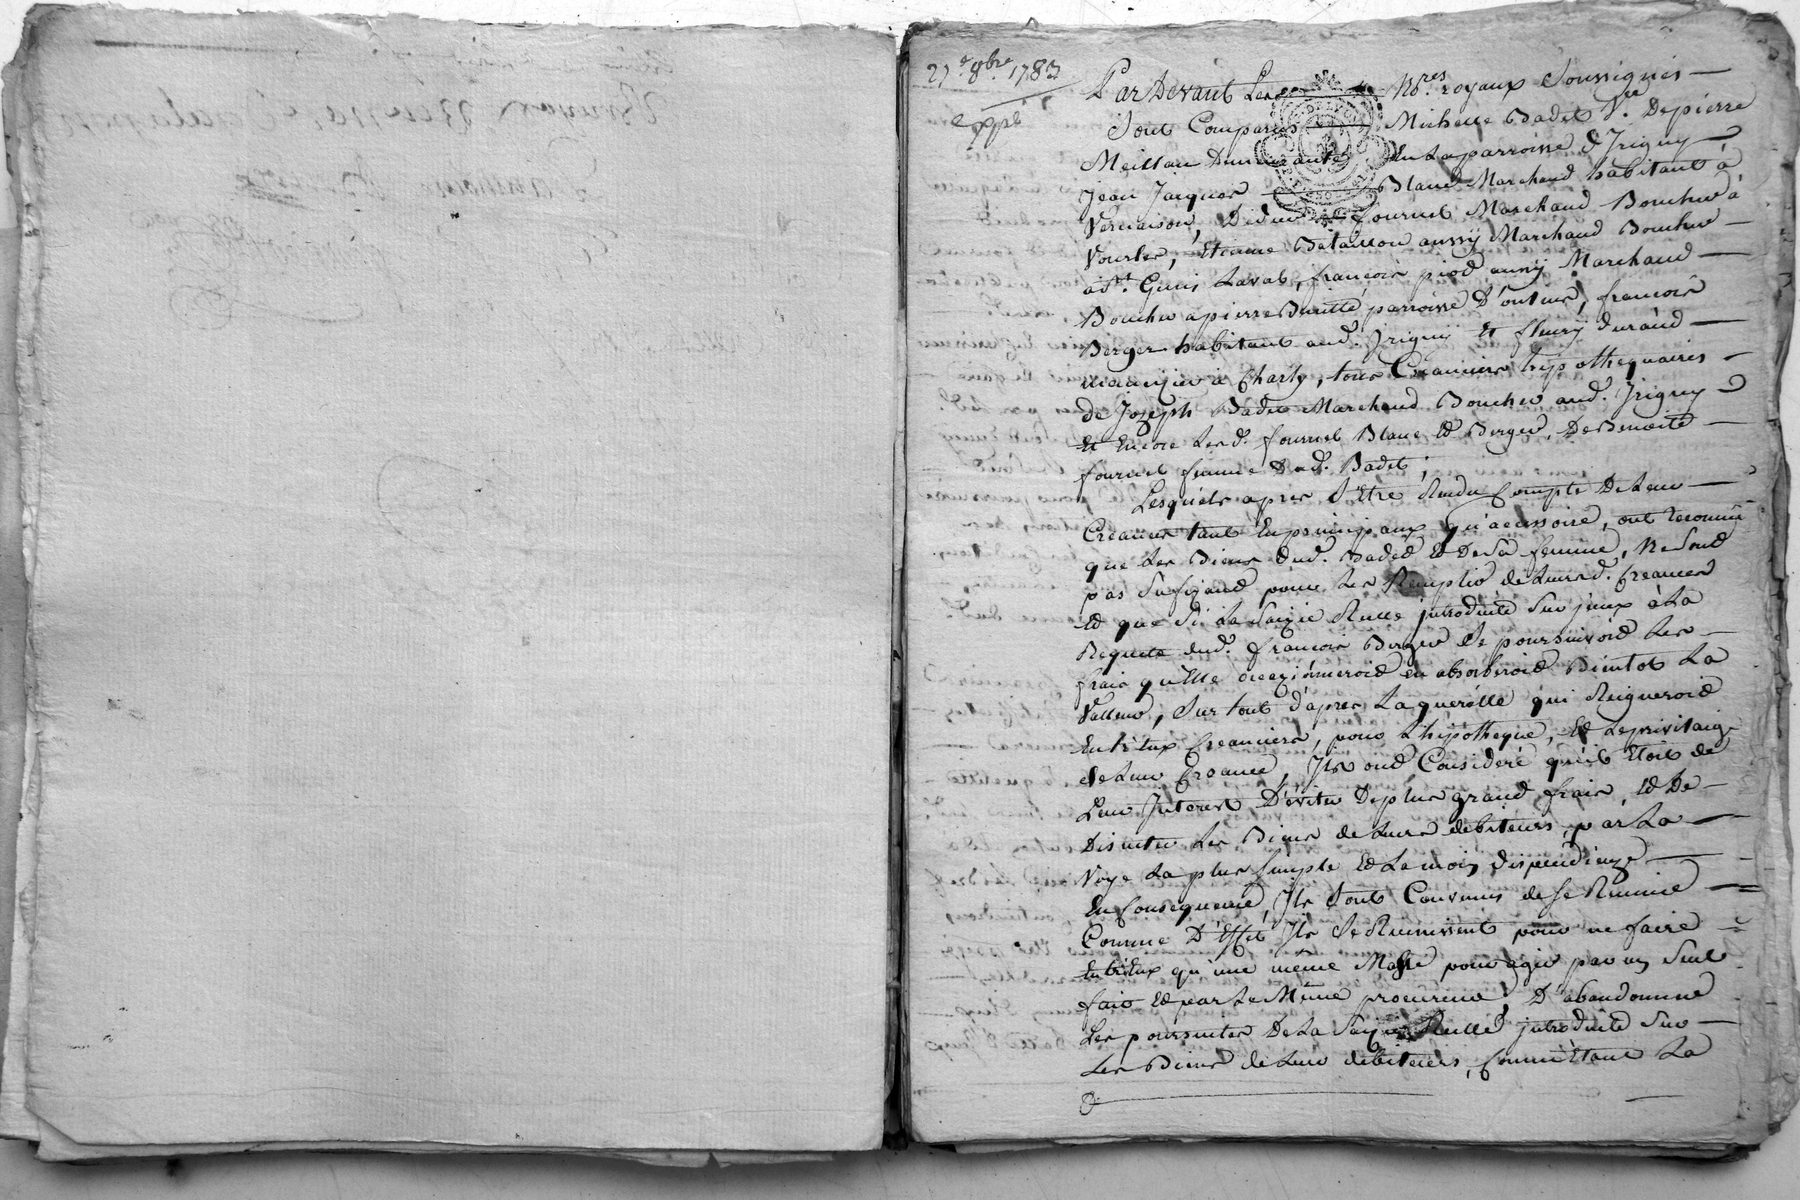 27.e 8bre 1783
expé
Par Devant Les Nres royaux Soussignés
Sont Comparus Michelle Badet Ve. De pierre
Meillan Demeurante En La parroisse d'Irigny
Jean Jacques Blanc Marchand habitant à
Vernaison, Didier fournel Marchand Boucher à
Vourles, Etienne Bataillon aussy Marchand Boucher
à St. Genis Laval, françois piod aussy Marchand
Boucher a pierre Benitte parroisse D'oulins, françois
Berger habitant aud. Irigny Et fleury durand
à Charly, tous Creanciers hypothequaires
de Joseph Badet Marchand Boucher aud. Irigny
Et Encore Lesd. fournel Blanc Et Berger, De Benoite
fournel femme Dud. Badet;
Lesquels apres S'Etre Rendu Compte De Leur
Creances tant En principaux qu'accessoire, ont reconnu
que Les Biens dud. Badet Et De Sa femme, Ne Sont
pas Sufizand pour Les Remplir de Leursd. Creances
Et que Si La Saizie Reelle introduite Sur jceux à La
Requete dud. françois Berger Se poursuivoit Les
frais qu'Elle occazionneroit en absorberoit Bientot La
Valleur, Sur tout d'apres La querelle qui Reigneroit
Entr'Eux Creanciers, pour L'hipotheque, Et Le privilaige
de Leur Creance, Ils ont Consideré qu'il Etoit de
Leur Interest D'éviter De plus grand frais, Et De
Discuter Les Biens de Leurs debiteurs, par La
Voye La plus Simple Et La moins dispendieuze
En Consequence, Ils Sont Convenus de Se Reunir
Comme D'Effet Ils Se Reunissent pour ne faire
Entr'Eux qu'une meme Masse pour agir par un Seul
fait Et par Le Même procureur, D'abandonner
Les poursuites De La Saizie Reelle introduite Sur
Les Biens de Leur debiteurs, Comme Etant La